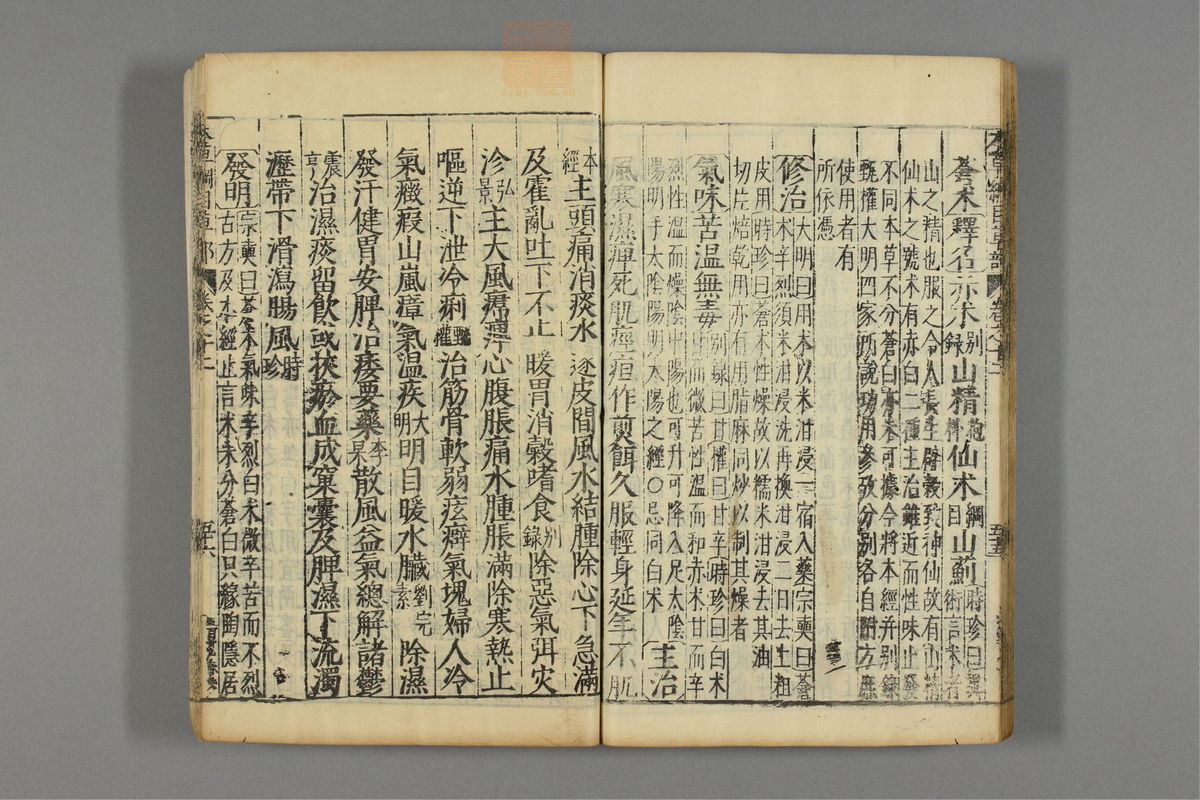 蒼朮釋名赤朮別錄山精抱朴仙朮綱目山薊時珍曰異術言朮者
山之精也服之令人長生辟穀致神仙故有山精
仙朮之號朮有赤白二種主治雖近而性味止發
不同本草不分蒼白亦未可據今將本經并別錄
甄權大明四家所說功用參攷分別各自附方庶
使用者有
所依憑
修治大明曰用朮以米泔浸一宿入藥宗奭曰蒼
朮辛烈須米泔浸洗再換泔浸二日去上粗
皮用時珍曰蒼朮性燥故以糯米泔浸去其油
切片焙乾用亦有用脂麻同炒以制其燥者
氣味苦溫無毒別錄曰甘權曰甘辛時珍曰白朮
甘而微苦性溫而和赤朮甘而辛
烈性溫而燥陰中陽也可升可降入足太陰
陽明手太陰陽明太陽之經○忌同白朮主治
風寒濕痺死肌痙疸作煎餌久服輕身延年不飢
本經主頭痛消痰水逐皮間風水結腫除心下急滿
及霍亂吐下不止暖胃消穀嗜食別錄除惡氣弭灾
沴弘景主大風𤸷痺心腹脹痛水腫脹滿除寒熱止
嘔逆下泄冷痢甄權治筋骨軟弱痃癖氣塊婦人冷
氣癥瘕山嵐瘴氣溫疾大明明目暖水臟劉完素除濕
發汗健胃安脾治痿要藥李杲散風益氣總解諸鬱
震亨治濕痰留飲或挾瘀血成窠囊及脾濕下流濁
瀝帶下滑瀉腸風時珍
發明宗奭曰蒼朮氣味辛烈白朮微辛苦而不烈
古方及本經止言朮未分蒼白只緣陶隱居
本草綱目草部 卷之十二 五十五
本草綱目草部 卷之十二 五十六